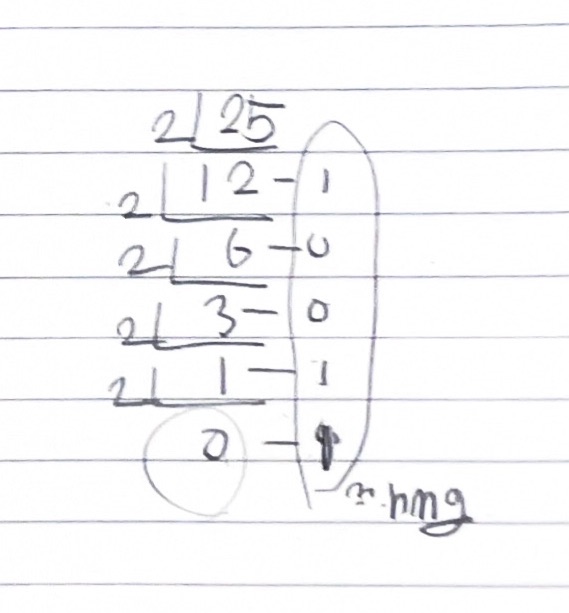 2 25
2 12 - 1
2 6 - 0
2 3 - 0
2 1 - 1
0 - 1